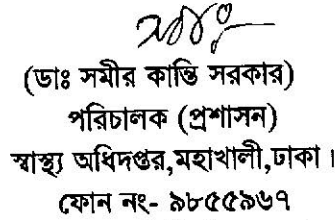 (ডাঃ সমীর কান্তি সরকার)
পরিচালক (প্রশাসন)
স্বাস্থ্য অধিদপ্তর,মহাখালী,ঢাকা।
ফোন নং- ৯৮৫৫৯৬৭